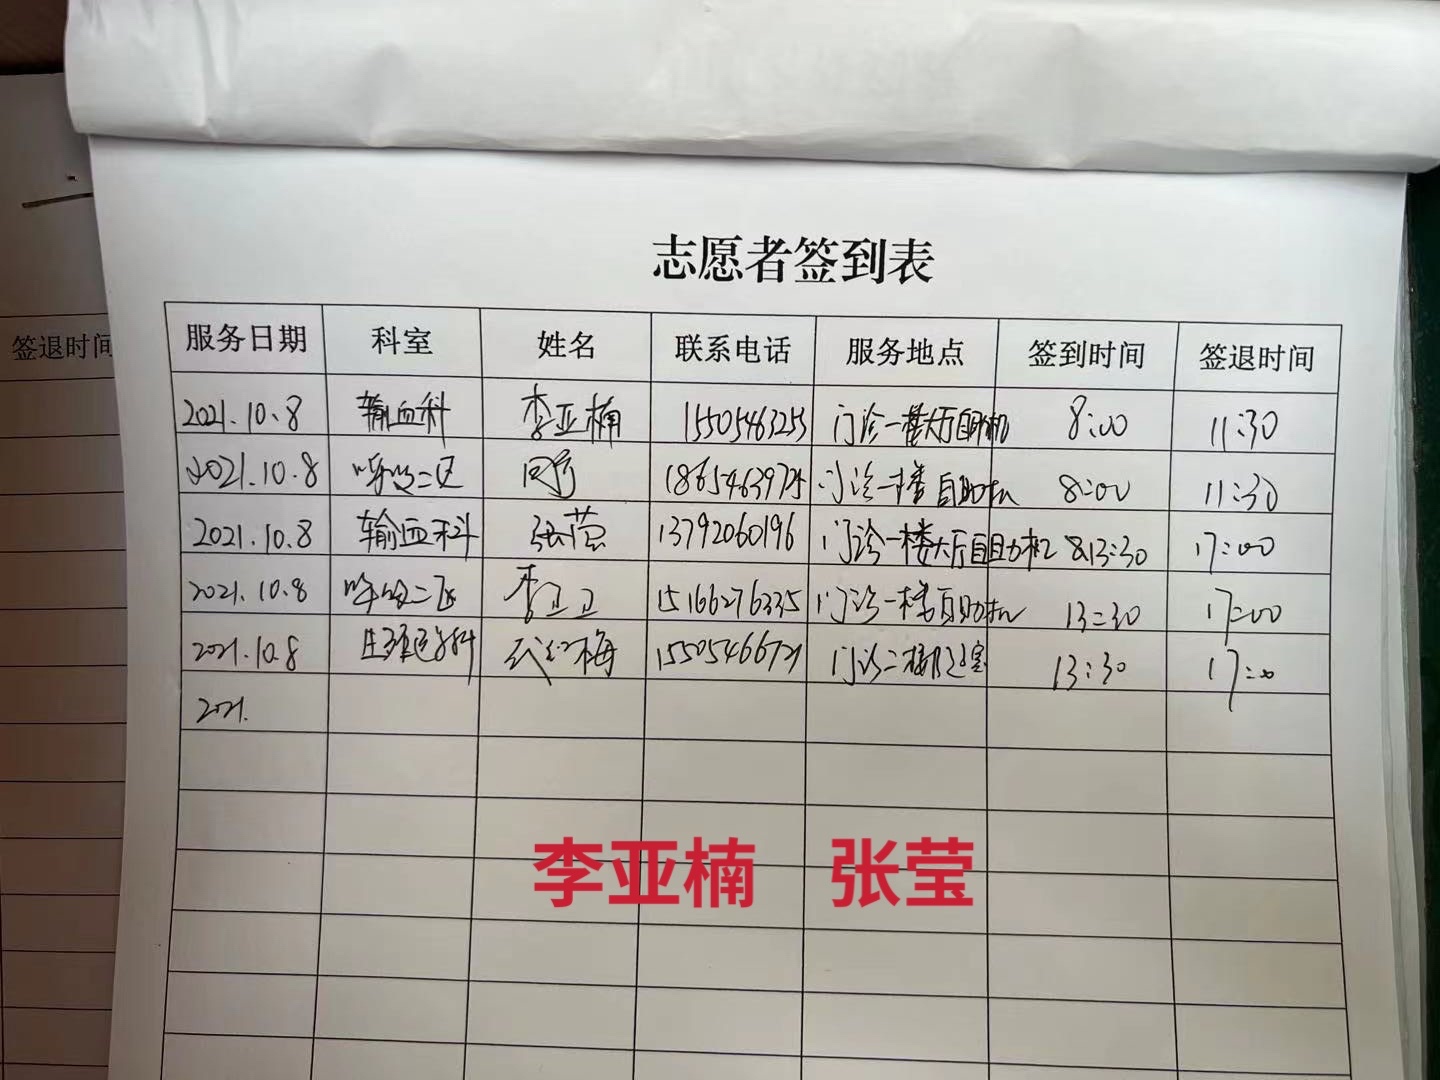 志愿者签到表
签退时间
服务日期 科室 姓名 联系电话 服务地点 签到时间 签退时间
2021.10.8 输血科 李亚楠 15505463253 门诊一楼大厅自助机 8:00 11:30
2021.10.8 呼吸二区 18654639725 门诊一楼自助机 8:00 11:30
2021.10.8 输血科 张莹 13792060196 门诊一楼大厅自助机 13:30 17:00
2021.10.8 呼吸二区 李卫卫 15166276335 门诊一楼自助机 13:30 17:00
2021.10.8 梅 15505466721 门诊二楼 13:30 17:00
2021.
李亚楠 张莹